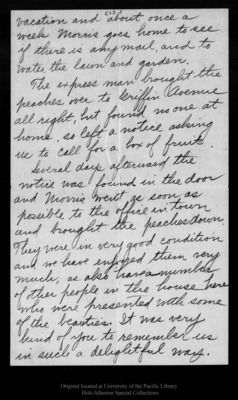 vacation and about once a
week Morris goes home to see
if there is any mail, and to
water the lawn and garden.
The express man brought the
peaches over to Griffin Avenue
all right, but found no one at
home, so left a notice asking
us to call for a box of fruit.
Several days afterward the
notice was found in the door
and Morris went as soon as
possible to the office in town
and brought the peaches down.
They were in very good condition
and we have enjoyed them very
much, as also have a number
of other people in the house here
who were presented with some
of the beauties. It was very
kind of you to remember us
in such a delightful way.
Original located at University of the Pacific Library
Holt-Atherton Special Collections